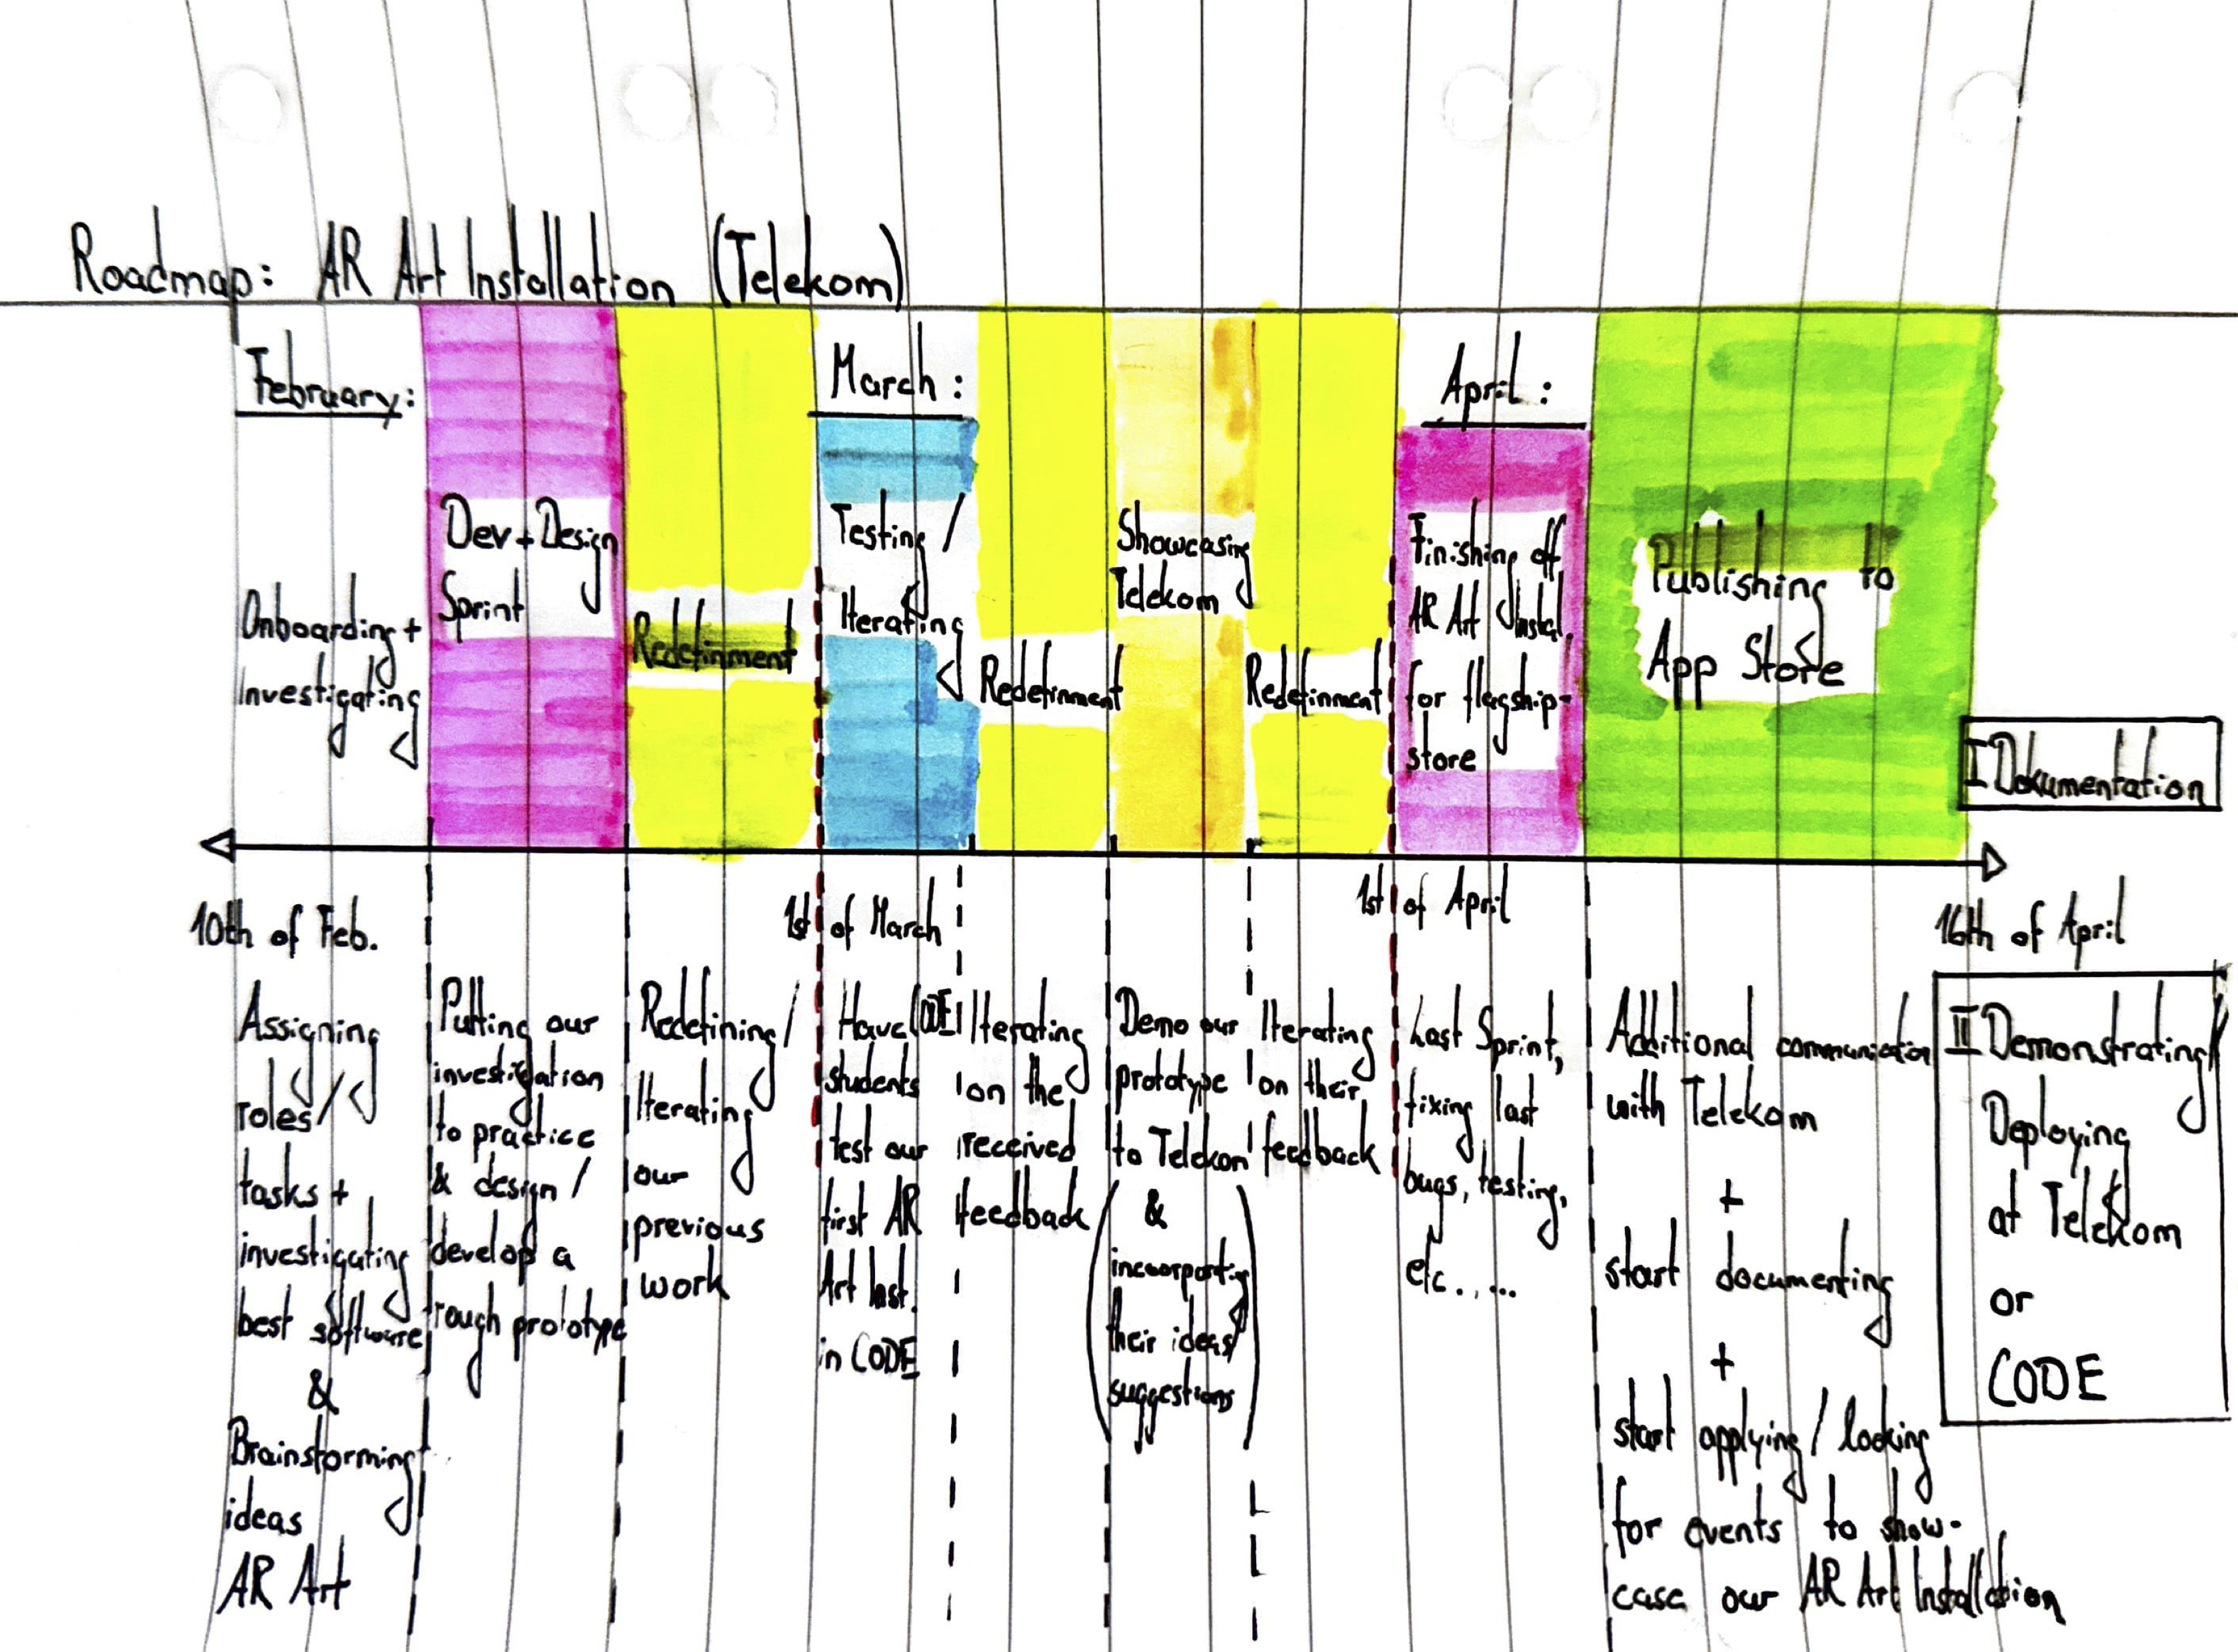 Roadmap: AR Art Installation (Telekom)
February:
Onboarding +
Investigating
Dev + Design
Sprint
Redefinment
March :
Testing /
Iterating
Redefinment
Showcasing
Telekom
Redefinment
April :
Finishing off
AR Art Instal.
for flagship-
store
Publishing to
App Store
I Dokumentation
10th of Feb.
1st of March
1st of April
16th of April
Assigning
roles /
tasks +
investigating
best software
&
Brainstorming
ideas
AR Art
Putting our
investigation
to practice
& design /
develop a
rough prototype
Redefining /
Iterating
our
previous
work
Have CODE
students
test our
first AR
Art Inst.
in CODE
Iterating
on the
received
feedback
Demo our
prototype
to Telekom
(&
incoorporating
their ideas/
suggestions)
Iterating
on their
feedback
Last Sprint,
fixing last
bugs, testing,
etc. , ...
Additional communication
with Telekom
+
start documenting
+
start applying / looking
for events to show-
case our AR Art Installation
II Demonstrating/
Deploying
at Telekom
or
CODE